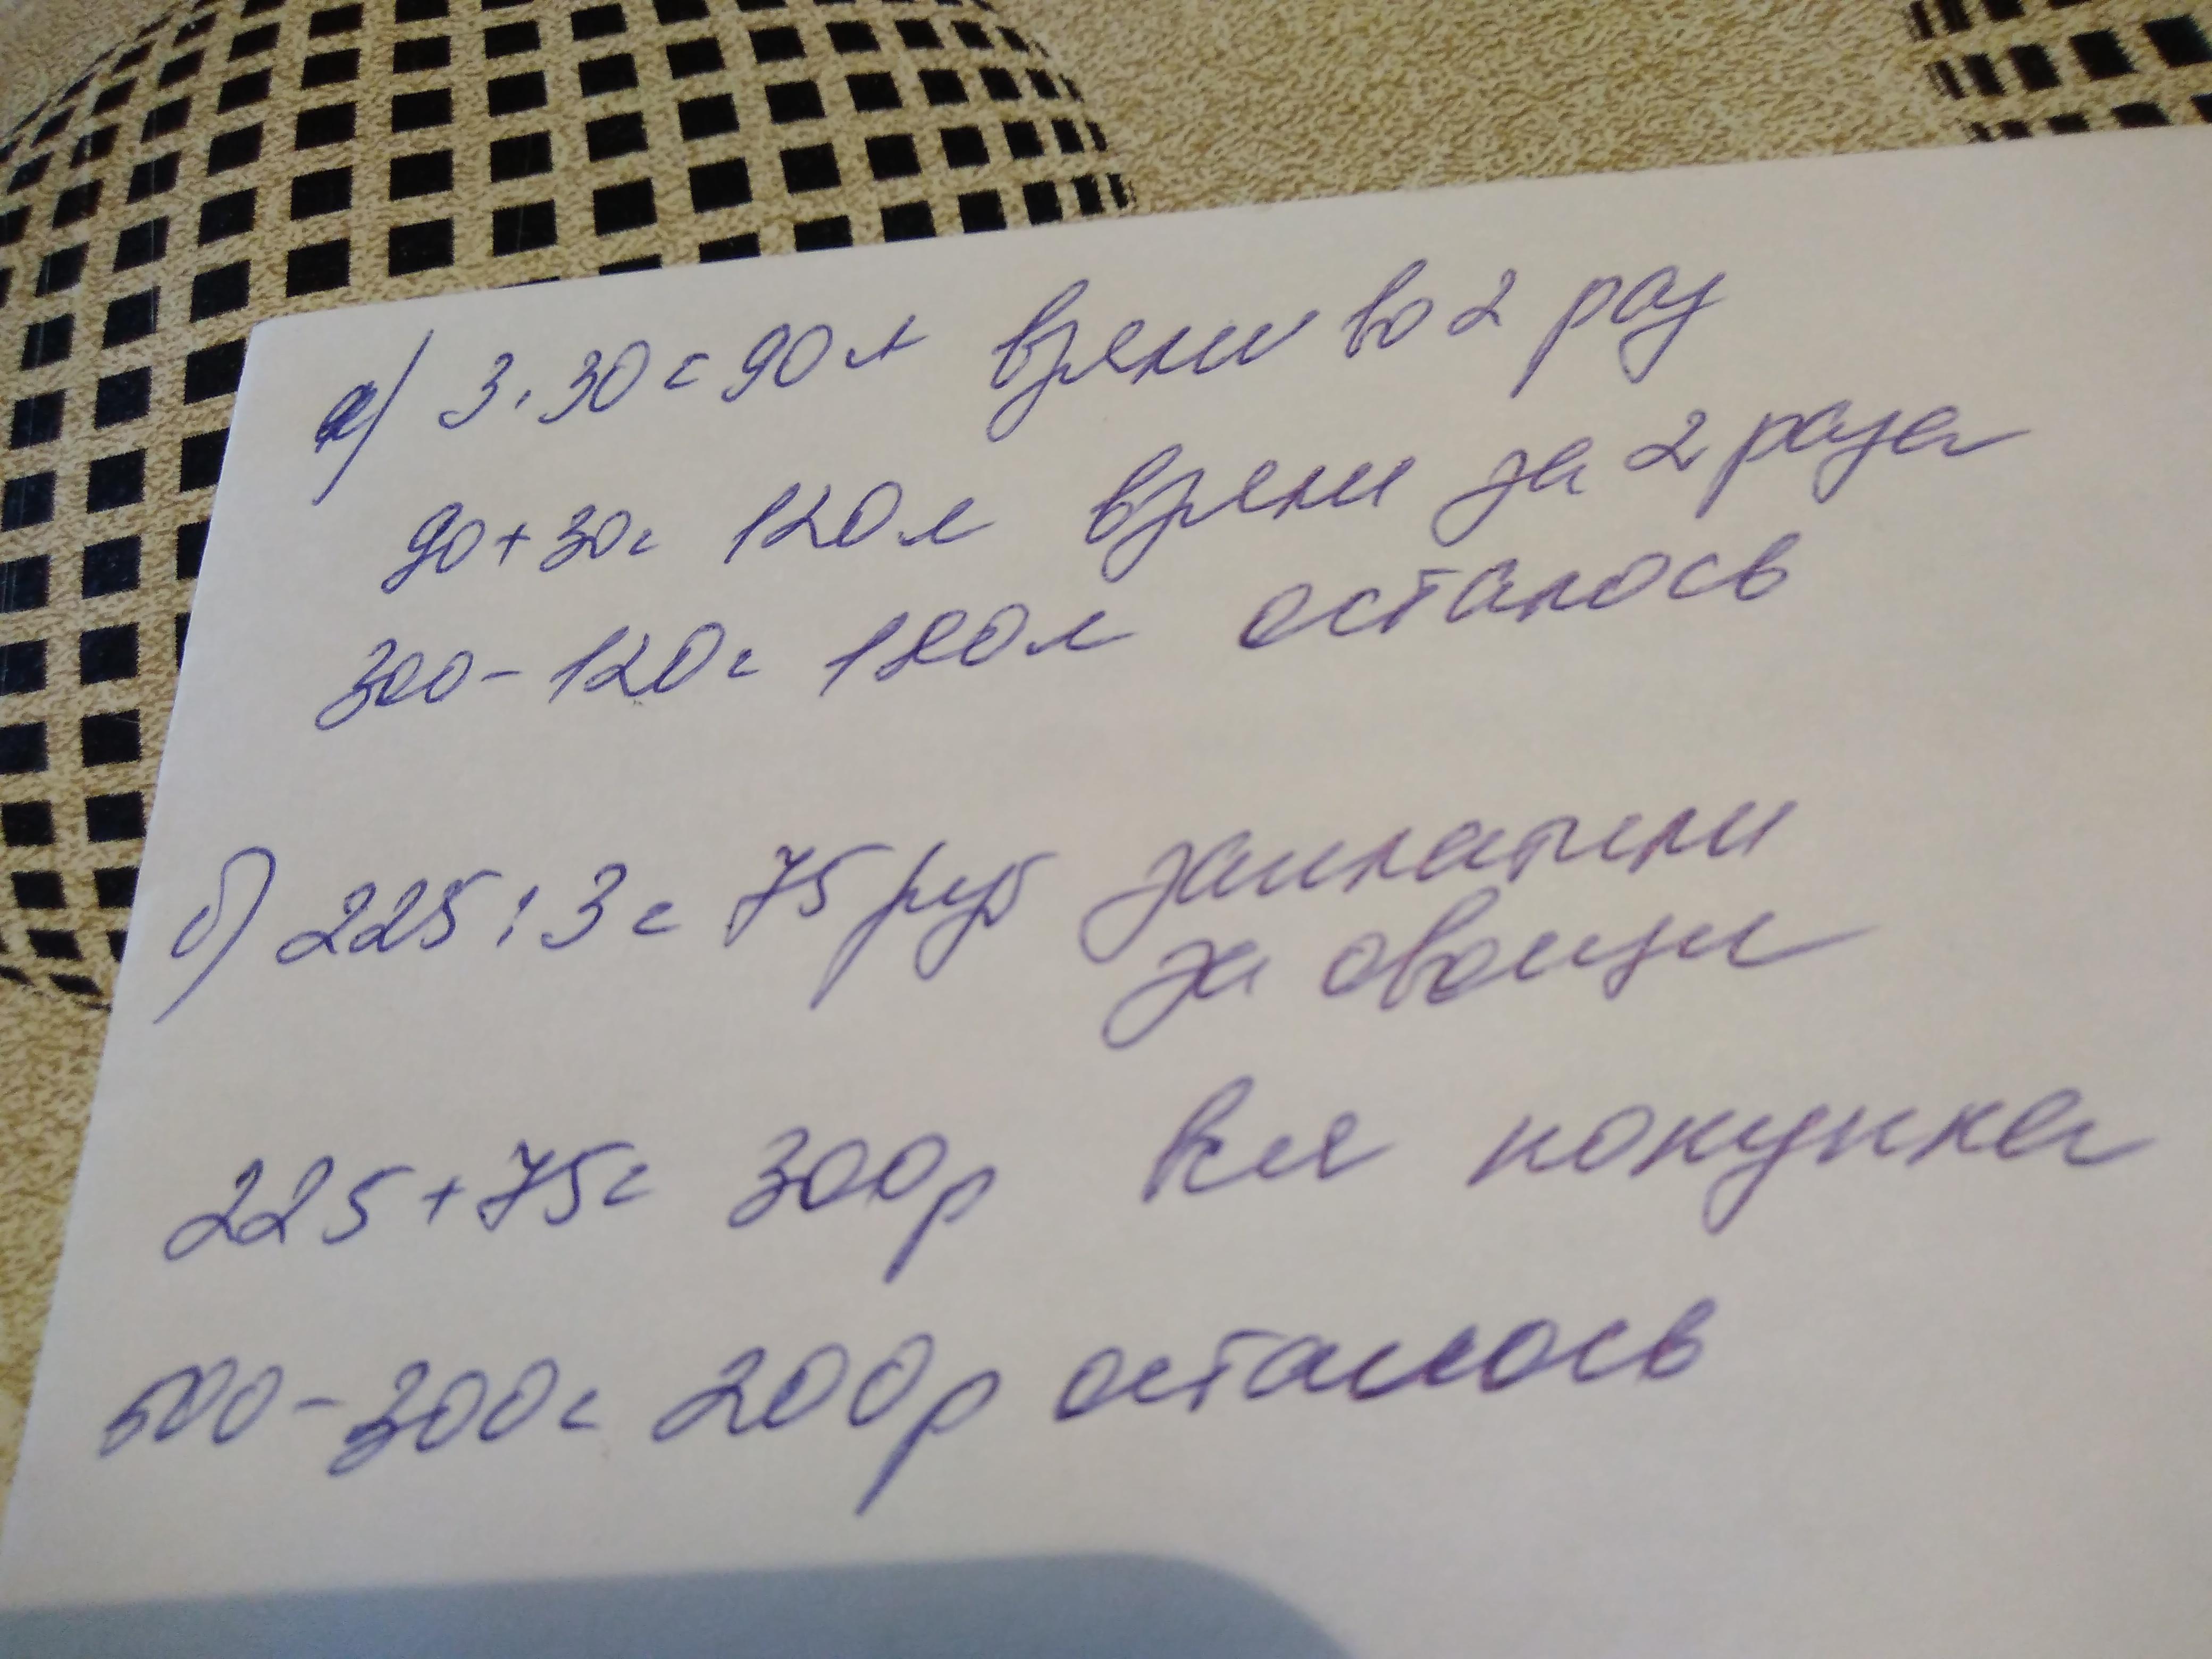 а) 3·30=90л взяли во 2 раз
90+30= 120л взяли за 2 раза
300-120= 180л осталось
б) 225:3= 75 руб заплатили
за овощи
225+75= 300р вся покупка
500-300= 200р осталось